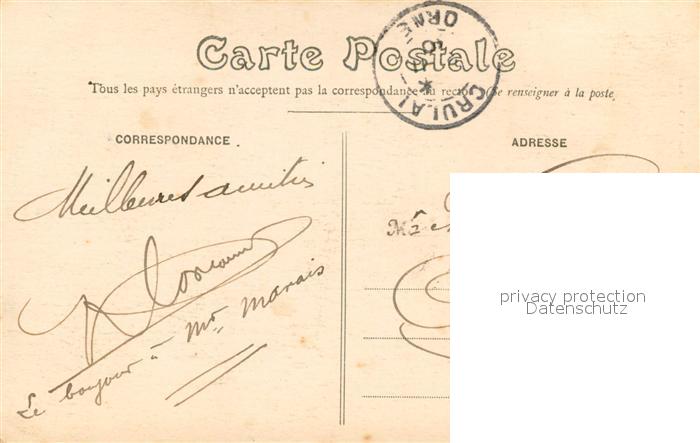 Carte Postale
Tous les pays étrangers n'acceptent pas la correspondance au recto (Se renseigner à la poste
CRULAI
ORNE
CORRESPONDANCE
ADRESSE
Meilleures amitiés
Le bonjour à Mr Marais
privacy protection
Datenschutz